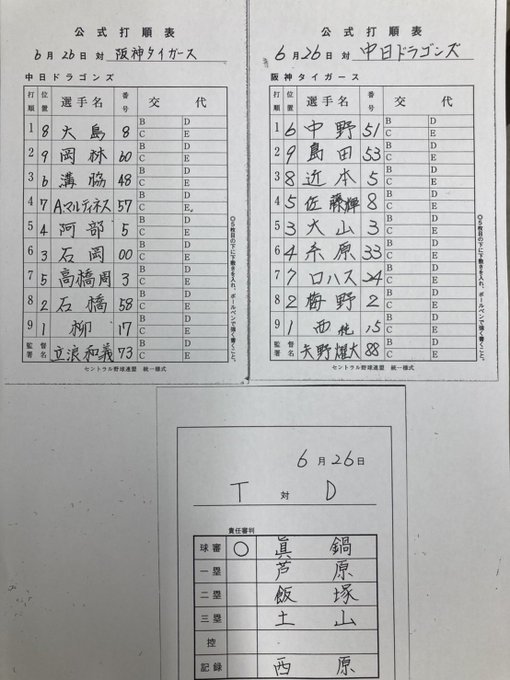 公式打順表
6月26日 対 阪神タイガース
中日ドラゴンズ
打順 位置 選手名 番号 交代
1 8 大島 8 B D C E
2 9 岡林 60 B D C E
3 6 溝脇 48 B D C E
4 7 A.マルティネス 57 B D C E
5 4 阿部 5 B D C E
6 3 石岡 00 B D C E
7 5 高橋周 3 B D C E
8 2 石橋 58 B D C E
9 1 柳 17 B D C E
監督署名 立浪和義 73 B D C E
◎5枚目の下に下敷きを入れ、ボールペンで強く書くこと。
セントラル野球連盟 統一様式
公式打順表
6月26日 対 中日ドラゴンズ
阪神タイガース
打順 位置 選手名 番号 交代
1 6 中野 51 B D C E
2 9 島田 53 B D C E
3 8 近本 5 B D C E
4 5 佐藤輝 8 B D C E
5 3 大山 3 B D C E
6 4 糸原 33 B D C E
7 7 ロハス 24 B D C E
8 2 梅野 2 B D C E
9 1 西純 15 B D C E
監督署名 矢野燿大 88 B D C E
◎5枚目の下に下敷きを入れ、ボールペンで強く書くこと。
セントラル野球連盟 統一様式
6月26日
T 対 D
責任審判
球審 ○ 眞鍋
一塁 芦原
二塁 飯塚
三塁 土山
控
記録 西原